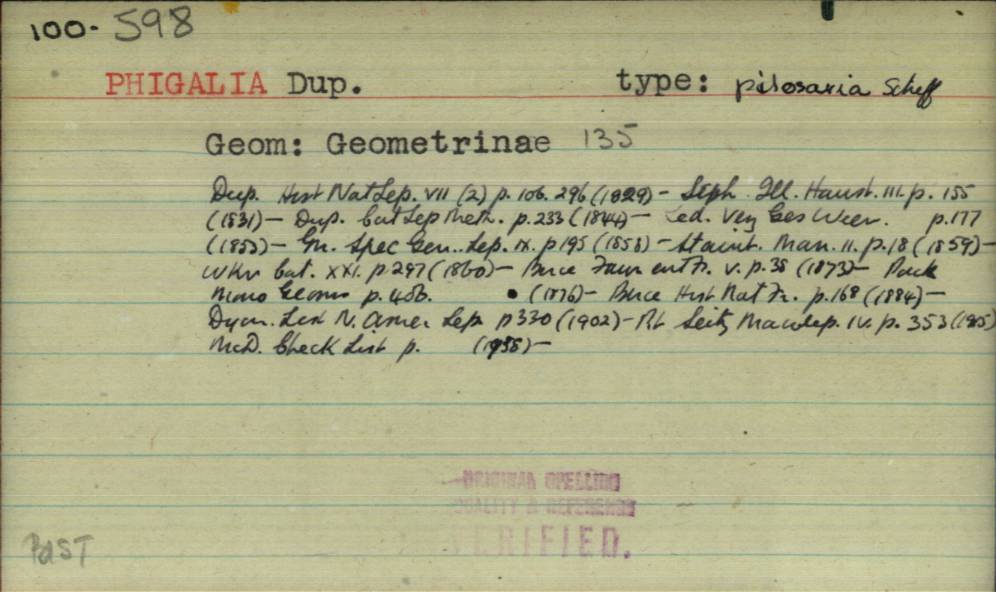 100-598
PHIGALIA Dup. type: pilosaria Schiff
Geom: Geometrinae 135
Dup. Hist Nat Lep. VII (2) p. 106. 296 (1829) - Steph. Ill. Haust. III. p. 155
(1831) - Dup. Cat Lep Meth. p. 233 (1844) - Led. Verz Ges Wien. p. 177
(1853) - Gn. Spec Gen. Lep. IX. p 195 (1858) - Staint. Man. II. p. 18 (1859) -
Wkr Cat. XXI. p. 297 (1860) - Berce Faun ent Fr. V. p. 38 (1873) - Pack
Mono Geoms p. 408. (1876) - Berce Hist Nat Fr. p. 168 (1884) -
Dyar. List N. Amer Lep p 330 (1902) - Seitz Macrolep. IV. p. 353
McD. Check List p. (1938) -
ORIGINAL SPELLING
REFERENCE
VERIFIED.